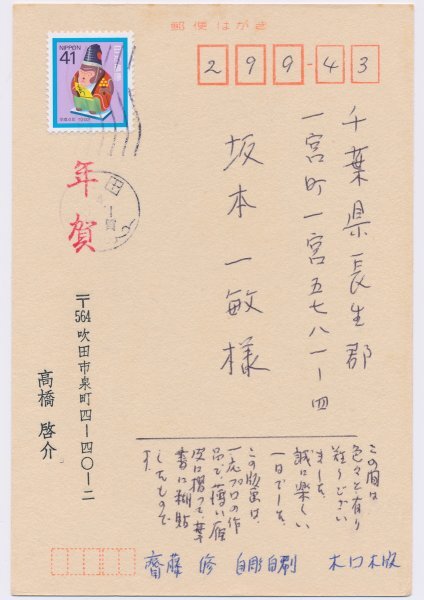 郵便はがき
NIPPON
41
日本郵便
平成4年 1992
299-43
千葉県長生郡
一宮町一宮五七八一ー四
坂本一敏様
年賀
田
〒564 吹田市泉町四ー四〇ー二
高橋啓介
この間は
色々と有り
難うござい
ました
誠に楽しい
一日でした
この版画は、
一応プロの作
品で薄い雁
皮に摺って、葉
書に糊貼
したもので
す
齋藤 修 自彫自刷 木口木版